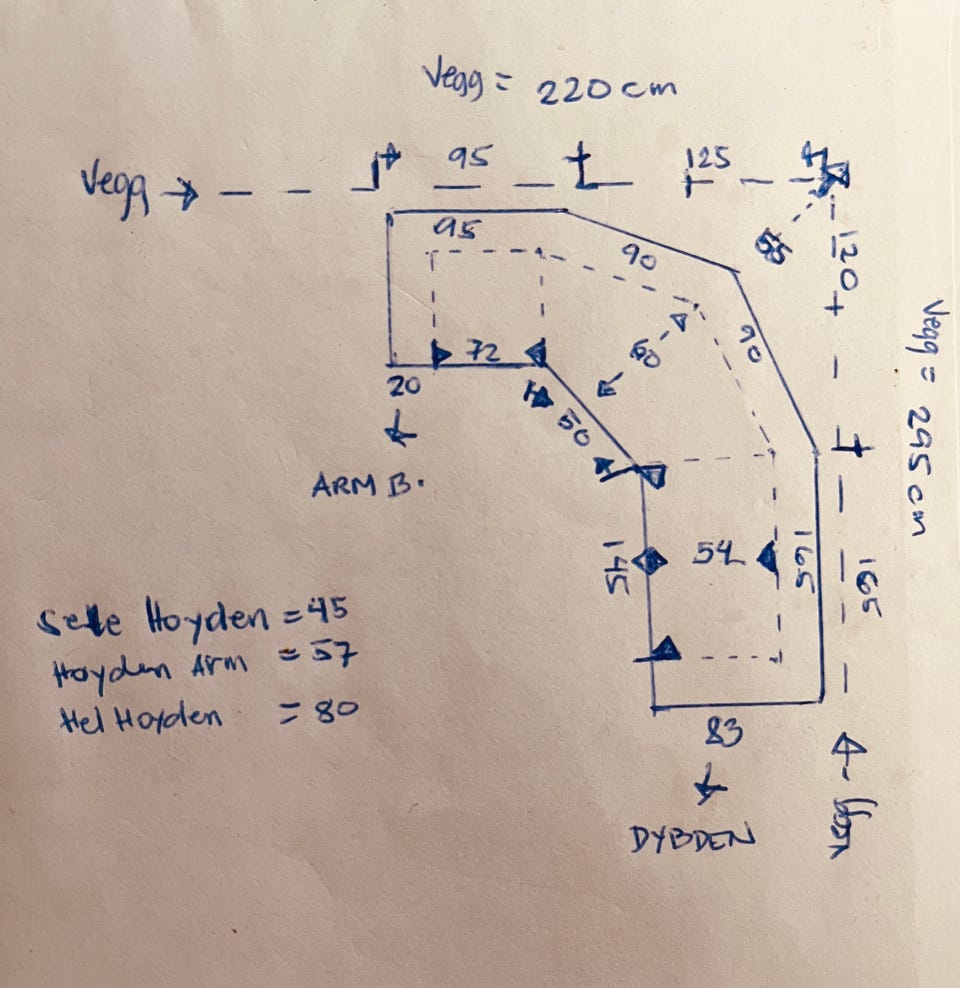 Vegg = 220 cm
Vegg → 95 125
95
90
55
120
90
60
72
20
50
ARM B.
Vegg = 295 cm
145
54
165
165
Sette Hoyden = 45
Hoyden Arm = 57
Hel Hoyden = 80
83
DYBDEN